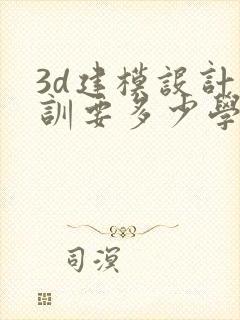 3d建模設計
訓要多少學
司溟